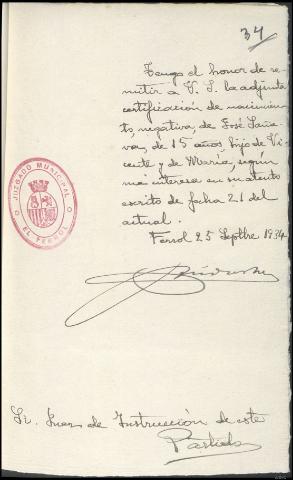 34
Tengo el honor de re-
mitir a V. S. la adjunta
certificación de nacimien-
to, negativa, de José
de 15 años, hijo de Vi-
cente y de Maria, segun
me interesa en su atento
escrito de fecha 21 del
actual.
Ferrol 25 Septbre 1934
JUZGADO MUNICIPAL
EL FERROL
Sr. Juez de Instrucción de este
Partido